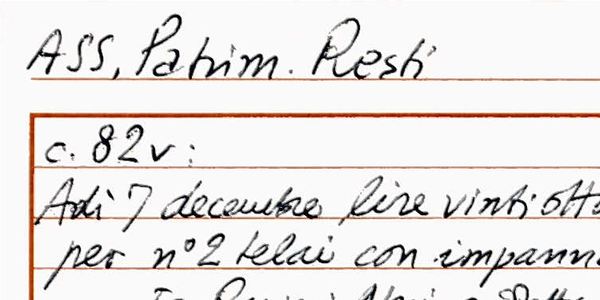 ASS, Patrim. Resti
c. 82v:
Adì 7 decembre lire vintiotto
per n° 2 telai con impann